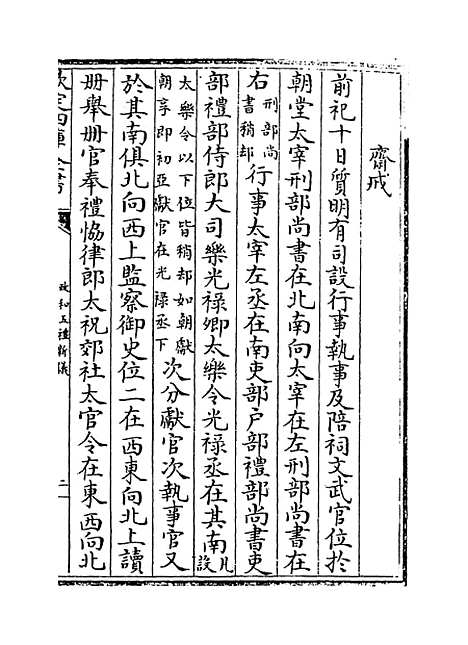 齋戒
前祀十日質明有司設行事執事及陪祠文武官位於
朝堂太宰刑部尚書在北南向太宰在左刑部尚書在
右刑部尚書稍却行事太宰左丞在南吏部户部禮部尚書吏
部禮部侍郎大司樂光禄卿太樂令光禄丞在其南凡設
太樂令以下位皆稍却如朝獻朝享即初亞獻官在光禄丞下次分獻官次執事官又
於其南俱北向西上監察御史位二在西東向北上讀
冊舉冊官奉禮恊律郎太祝郊社太官令在東西向北
欽定四庫全書
政和五禮新儀
二